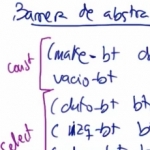 Barrera de abstra
const
(make-bt d
vacio-bt
select
(dato-bt b
(izq-bt b